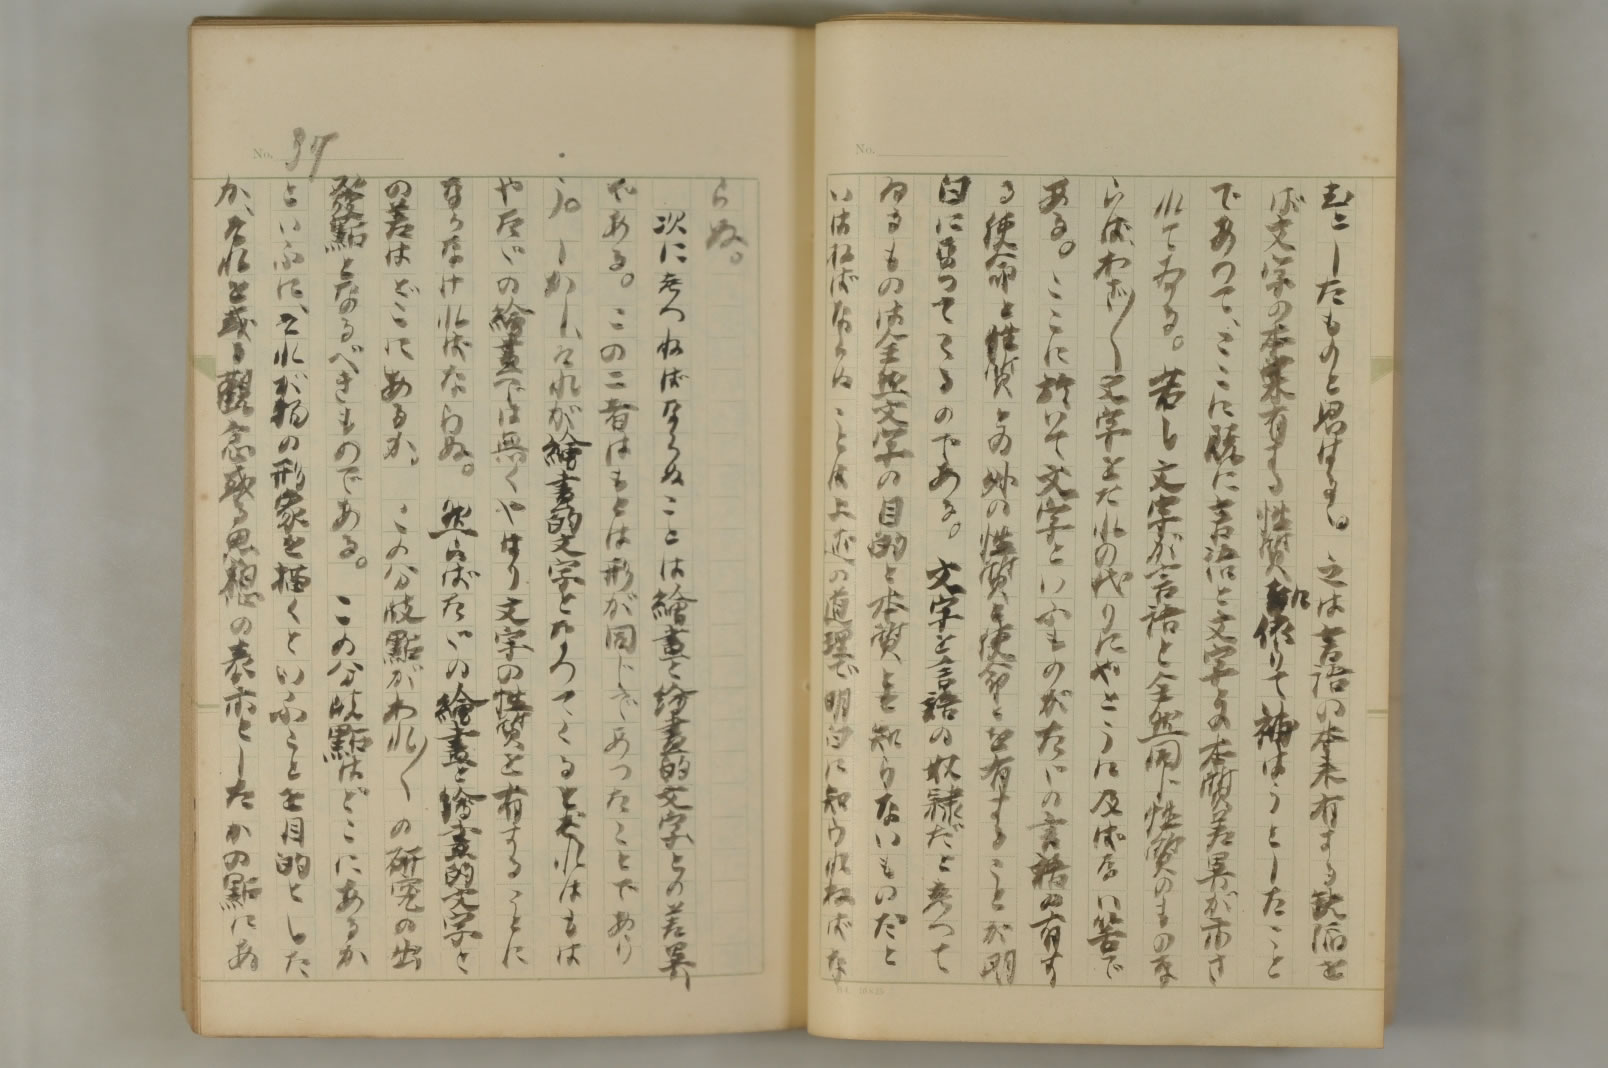 むとしたものと思はるゝ。之は言語の本来有する缺陥を
ば文字の本来有する性質に依りて補はうとしたこと
であつて、ここに勝に言語と文字との本質差異が示さ
れてゐる。若し文字が言語と全然同じ性質のものな
らば、わざ〳〵文字をたれの代りにやとうに及ばない筈で
ある。ここに於いて文字といふものがたゞの言語の有す
る使命と性質との外の性質と使命とを有することが明
白になつてくるのである。文字を言語の奴隷だと考へて
ゐるものは全然文字の目的と本質とを知らないものだと
いはねばならぬことは上述の道理で明白に知られねばな
No.
らぬ。
次に考へねばならぬことは繪畫と繪畫的文字との差異
である。この二者はもとは形が同じであつたことであり
う。しかし、それが繪畫的文字となつてくるとそれはもは
やたゞの繪畫では無くやはり文字の性質を有することに
ならなければならぬ。然らばたゞの繪畫と繪畫的文字と
の差はどこにあるか。この分岐點がわれ〳〵の研究の出
發點となるべきものである。この分岐點はどこにあるか
といふに、それが物の形象を描くといふことを目的とした
か、それを或る觀念或る思想の表示としたかの點にあ
No. 37